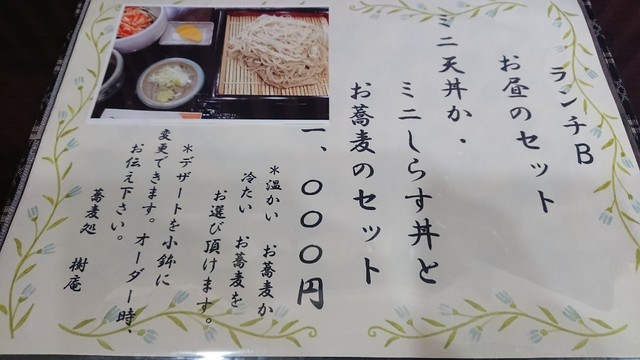 ランチB
お昼のセット
ミニ天丼か、
ミニしらす丼と
お蕎麦のセット
一、〇〇〇円
*温かい お蕎麦か
冷たい お蕎麦を
お選び頂けます。
*デザートを小鉢に
変更できます。オーダー時、
お伝え下さい。
蕎麦処 樹庵